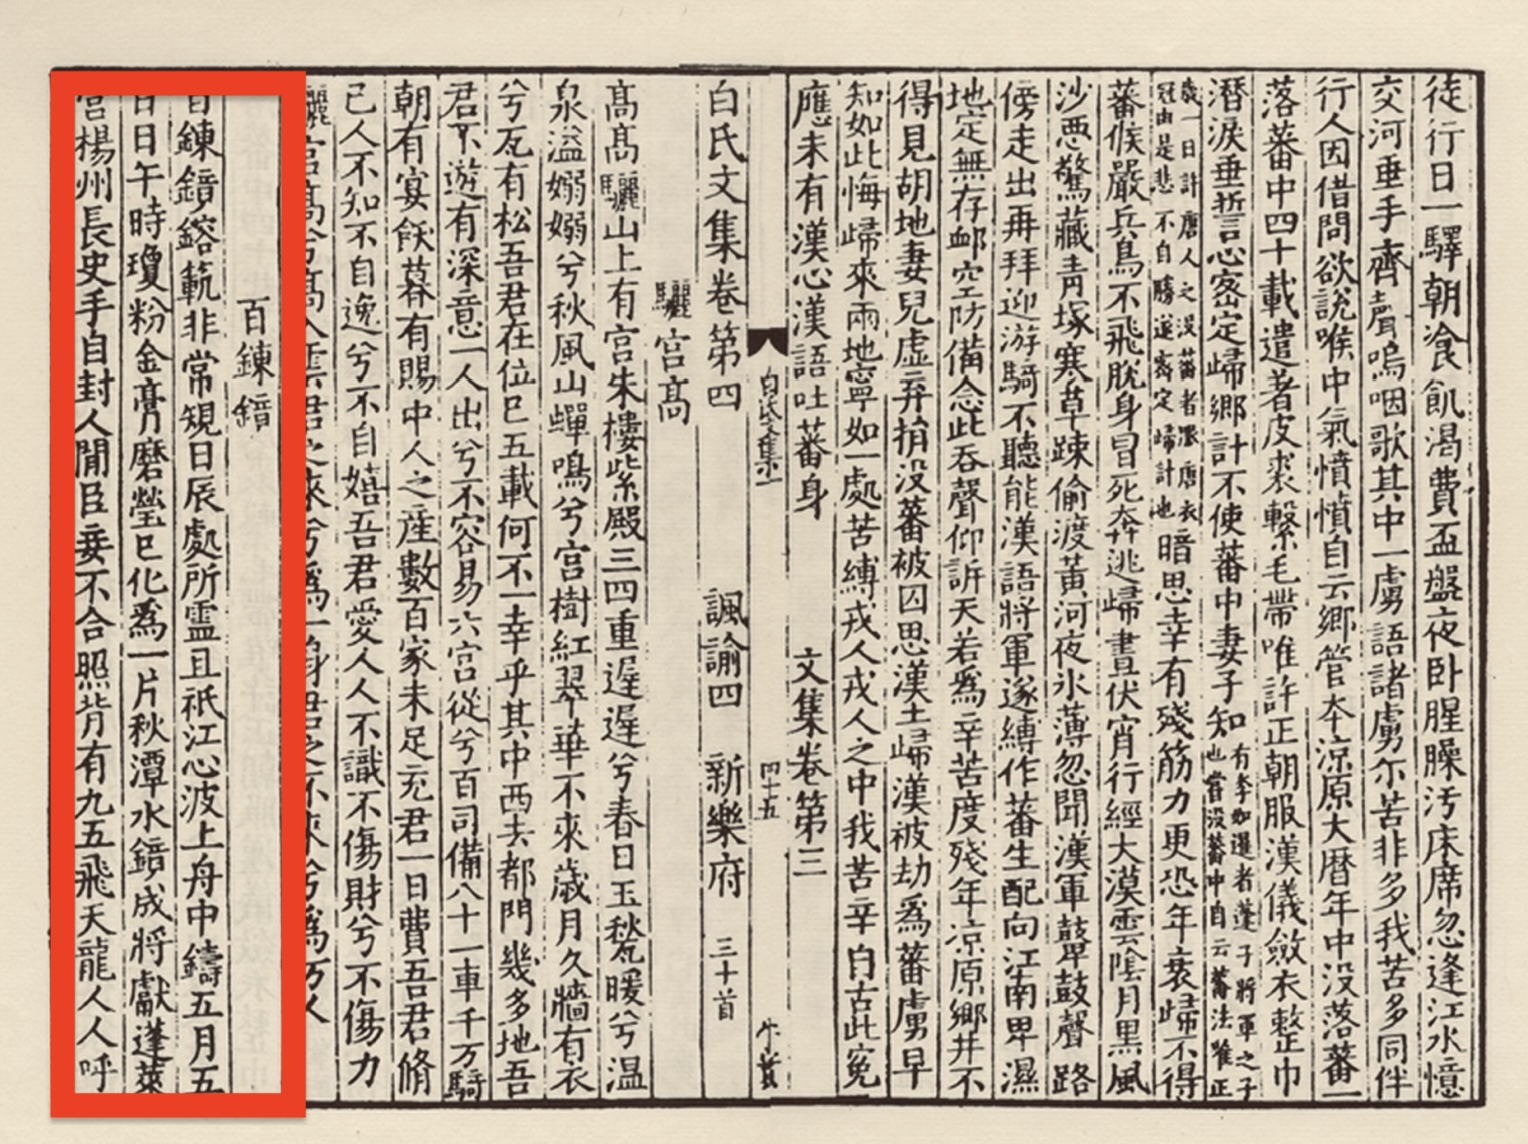 徒行日一驛朝飡飢渴費盃盤夜卧腥臊汚床席忽逢江水憶
交河垂手齊聲嗚咽歌其中一虜語諸虜尓苦非多我苦多同伴
行人因借問欲說喉中氣憤憤自云鄉管本凉原大曆年中没落蕃一
落蕃中四十載遣著皮裘繫毛帶唯許正朝服漢儀斂衣整巾
潛淚垂誓心密定歸鄉計不使蕃中妻子知有李如暹者蓬子將軍之子也嘗没蕃中自云蕃法唯正
歲一日許唐人之没蕃者服唐衣冠由是悲不自勝遂密定歸計也暗思幸有殘筋力更恐年衰歸不得
蕃候嚴兵鳥不飛脫身冒死奔逃歸晝伏宵行經大漠雲陰月黑風
沙惡驚藏青塚寒草踈偷渡黃河夜氷薄忽聞漢軍鼙鼓聲路
傍走出再拜迎游騎不聽能漢語將軍遂縛作蕃生配向江南卑濕
地定無存卹空防備念此吞聲仰訴天若爲辛苦度殘年凉原鄉井不
得見胡地妻兒虛弃捐没蕃被囚思漢土歸漢被劫爲蕃虜早
知如此悔歸來兩地寧如一處苦縛戎人戎人之中我苦辛自古此寃
應未有漢心漢語吐蕃身 文集卷第三
白氏文集 四十五
白氏文集卷第四 諷諭四 新樂府 三十首
驪宮高
高高驪山上有宮朱樓紫殿三四重遲遲兮春日玉甃暖兮温
泉溢嫋嫋兮秋風山蟬鳴兮宮樹紅翠華不來歲月久牆有衣
兮瓦有松吾君在位已五載何不一幸乎其中西去都門幾多地吾
君不遊有深意一人出兮不容易六宮從兮百司備八十一車千万騎
朝有宴飫暮有賜中人之産數百家未足充君一日費吾君脩
己人不知不自逸兮不自嬉吾君愛人人不識不傷財兮不傷力
驪宮高兮高入雲君之來兮爲一身君之不來兮爲万人
百鍊鏡
百鍊鏡鎔範非常規日辰處所靈且祇江心波上舟中鑄五月五
日日午時瓊粉金膏磨瑩已化爲一片秋潭水鏡成將獻蓬萊
宮楊州長史手自封人閒臣妾不合照背有九五飛天龍人人呼